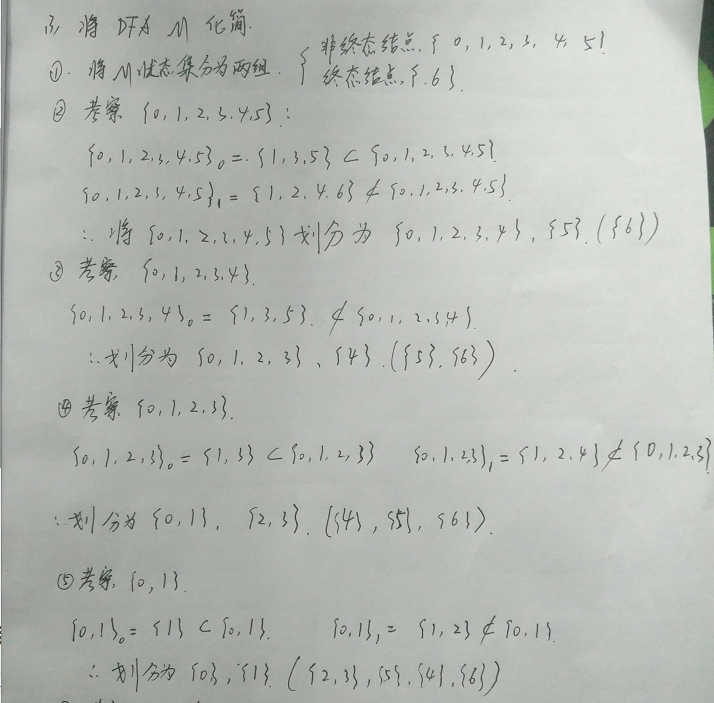 (3) 将 DFA M 化简.
①. 将M状态集分为两组. { 非终态结点. { 0, 1, 2, 3, 4, 5}
终态结点, {.6}.
② 考察 {0, 1, 2, 3, 4, 5} :
{0, 1, 2, 3, 4, 5}₀ = {1, 3, 5} ⊂ {0, 1, 2, 3, 4, 5}
{0, 1, 2, 3, 4, 5}₁ = {1, 2, 4, 6} ⊄ {0, 1, 2, 3, 4, 5}.
∴ 将 {0, 1, 2, 3, 4, 5} 划分为 {0, 1, 2, 3, 4}, {5}. ({6})
③ 考察 {0, 1, 2, 3, 4}.
{0, 1, 2, 3, 4}₀ = {1, 3, 5}. ⊄ {0, 1, 2, 3, 4}.
∴ 划分为 {0, 1, 2, 3}、{4}. ({5}, {6}) .
④ 考察 {0, 1, 2, 3}.
{0, 1, 2, 3}₀ = {1, 3} ⊂ {0, 1, 2, 3} {0, 1, 2, 3}₁ = {1, 2, 4} ⊄ {0, 1, 2, 3}
∴ 划分为 {0, 1}, {2, 3}. ({4}, {5}, {6}).
⑤ 考察 {0, 1}.
{0, 1}₀ = {1} ⊂ {0, 1}. {0, 1}₁ = {1, 2} ⊄ {0, 1}.
∴ 划分为 {0}, {1} ({2, 3}, {5}, {4}, {6})